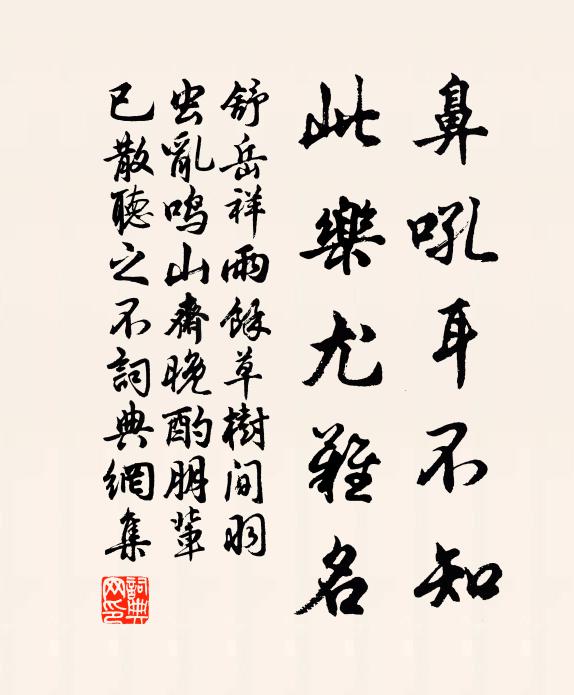 鼻吼耳不知
此樂尤難名
舒岳祥雨餘草樹間羽
虫亂鳴山齋晚酌朋輩
已散聽之不詞典網集
詞典網印